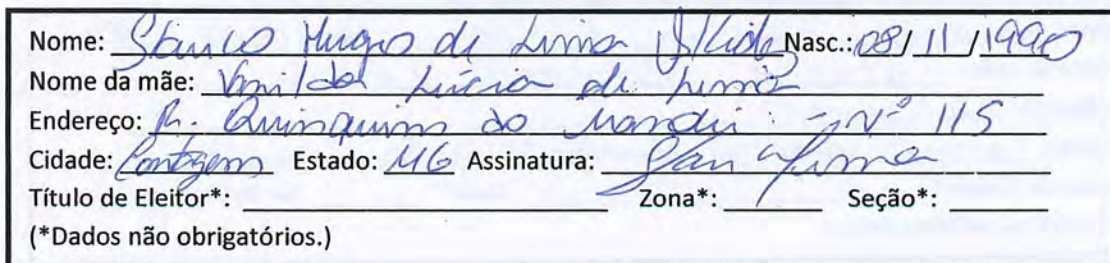 Nome: Hugo de Lima Nasc.: 08/11/1990
Nome da mãe: Vanilda Lúcia de Lima
Endereço: R. do - Nº 115
Cidade: Contagem Estado: MG Assinatura:
Título de Eleitor*: Zona*: Seção*:
(*Dados não obrigatórios.)